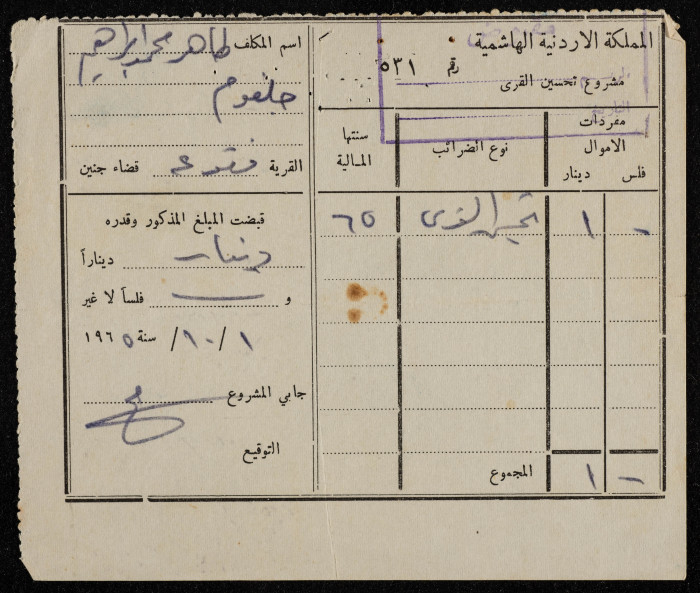 المملكة الاردنية الهاشمية
مشروع تحسين القرى
رقم ٥٣١
مفردات الاموال
فلس
دينار
نوع الضرائب
سنتها المالية
-
١
تحسين القرى
٦٥
المجموع
١
-
اسم المكلف طاهر محمد ابراهيم
جلغوم
القرية فقوعة قضاء جنين
قبضت المبلغ المذكور وقدره
دينار ديناراً
و — فلساً لا غير
١/١٠/ سنة ١٩٦٥
جابي المشروع
التوقيع